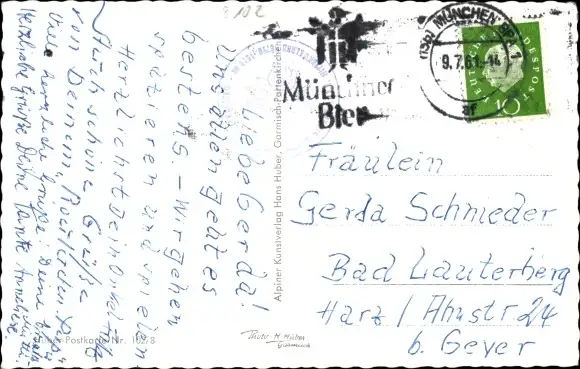 102
(13b) MÜNCHEN
9.7.61.-14
DEUTSCHE BUNDESPOST
10
Münchner
Bier
Liebe Gerda!
Uns allen geht es
bestens, - wir gehen
spazieren und spielen
Herzlichst Dein Onkel
Auch schöne Grüße
von Deinem
Viele herzliche Grüße, Deine
Herzliche Grüße Deine Tante Anneliese
Fräulein
Gerda Schmieder
Bad Lauterberg
Harz / Ahnstr 24
b. Geyer
Alpiner Kunstverlag Hans Huber, Garmisch-Partenkirchen
Huber-Postkarte Nr. 1028
Photo H. Huber
Garmisch